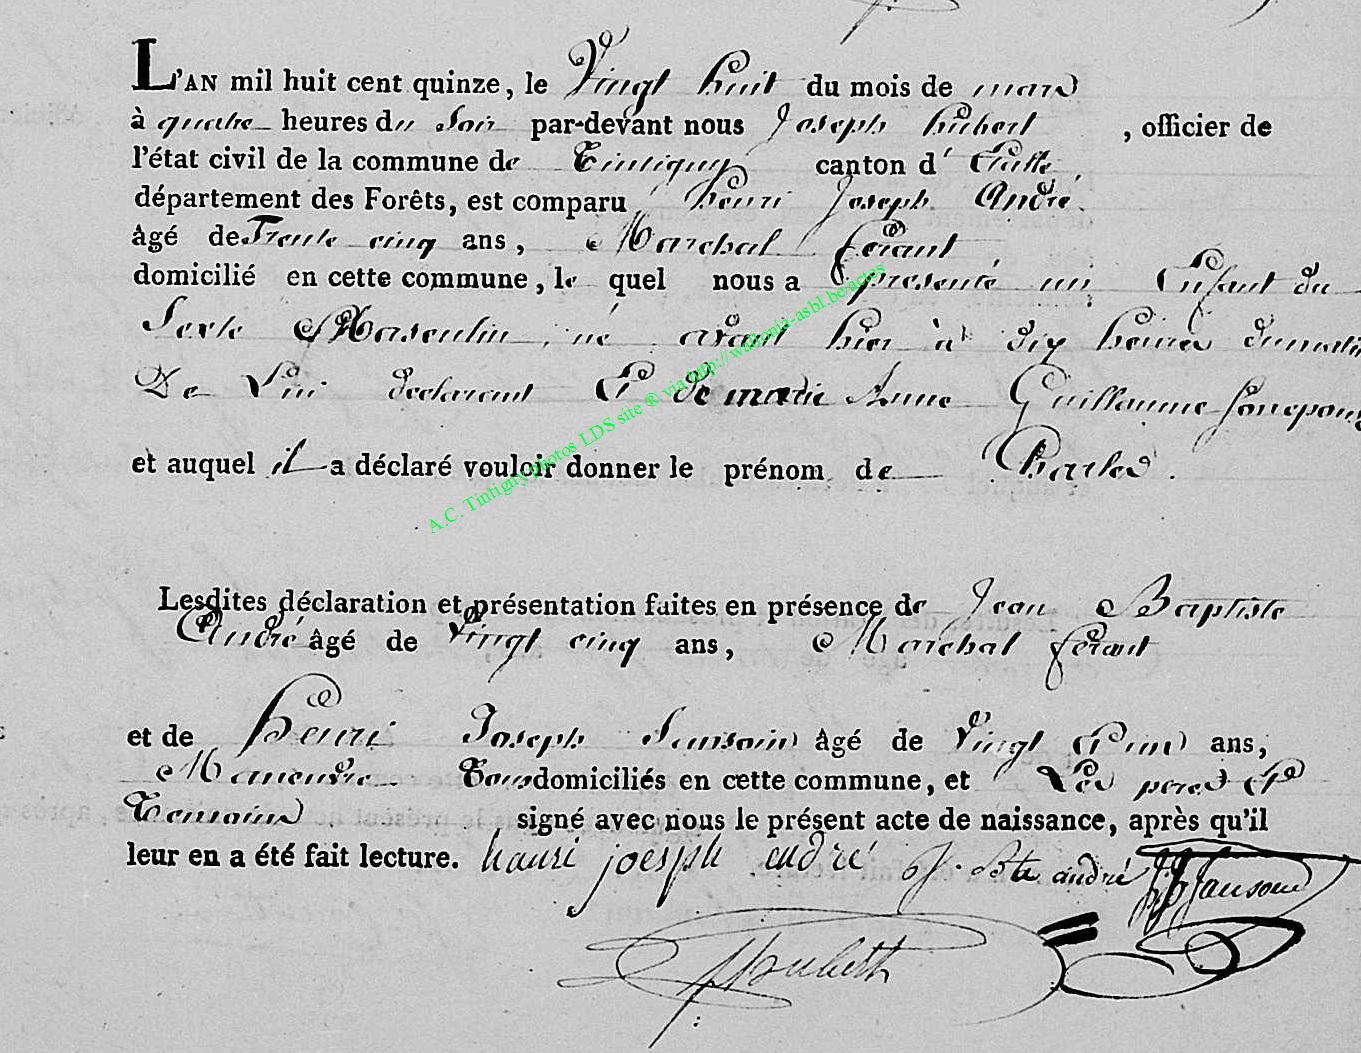 L'AN mil huit cent quinze, le Vingt huit du mois de mars
à quatre heures du Soir par-devant nous Joseph hubert, officier de
l'état civil de la commune de Tintigny canton d' Etalle,
département des Forêts, est comparu henri Joseph André
âgé de Trente cinq ans, Marchal ferant
domicilié en cette commune, le quel nous a presenté un Enfant du
Sexle Masculin, né avant hier à dix heures dumatin
De Lui declarent Et de marie Anne Guillaume Son epouse
et auquel il a déclaré vouloir donner le prénom de Charles.
A.C. Tintigny photos LDS site ® via http://wallonia-asbl.be/actes
Lesdites déclaration et présentation faites en présence de Jean Baptiste
André âgé de Vingt cinq ans, Marchal ferant
et de henri Joseph Sansoin âgé de Vingt Et un ans,
Manouvre Tous domiciliés en cette commune, et Les peres Et
Temoins signé avec nous le présent acte de naissance, après qu'il
leur en a été fait lecture. hanri joesph andré J. Bte andré hJ Sansoin
Hubert